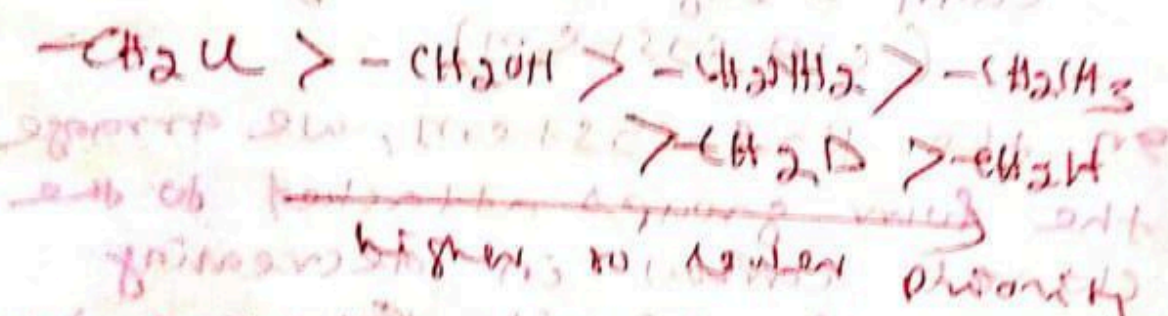 -CH2Cl > -CH2OH > -CH2NH2 > -CH2CH3
> -CH2D > -CH2H
higher, to, priority